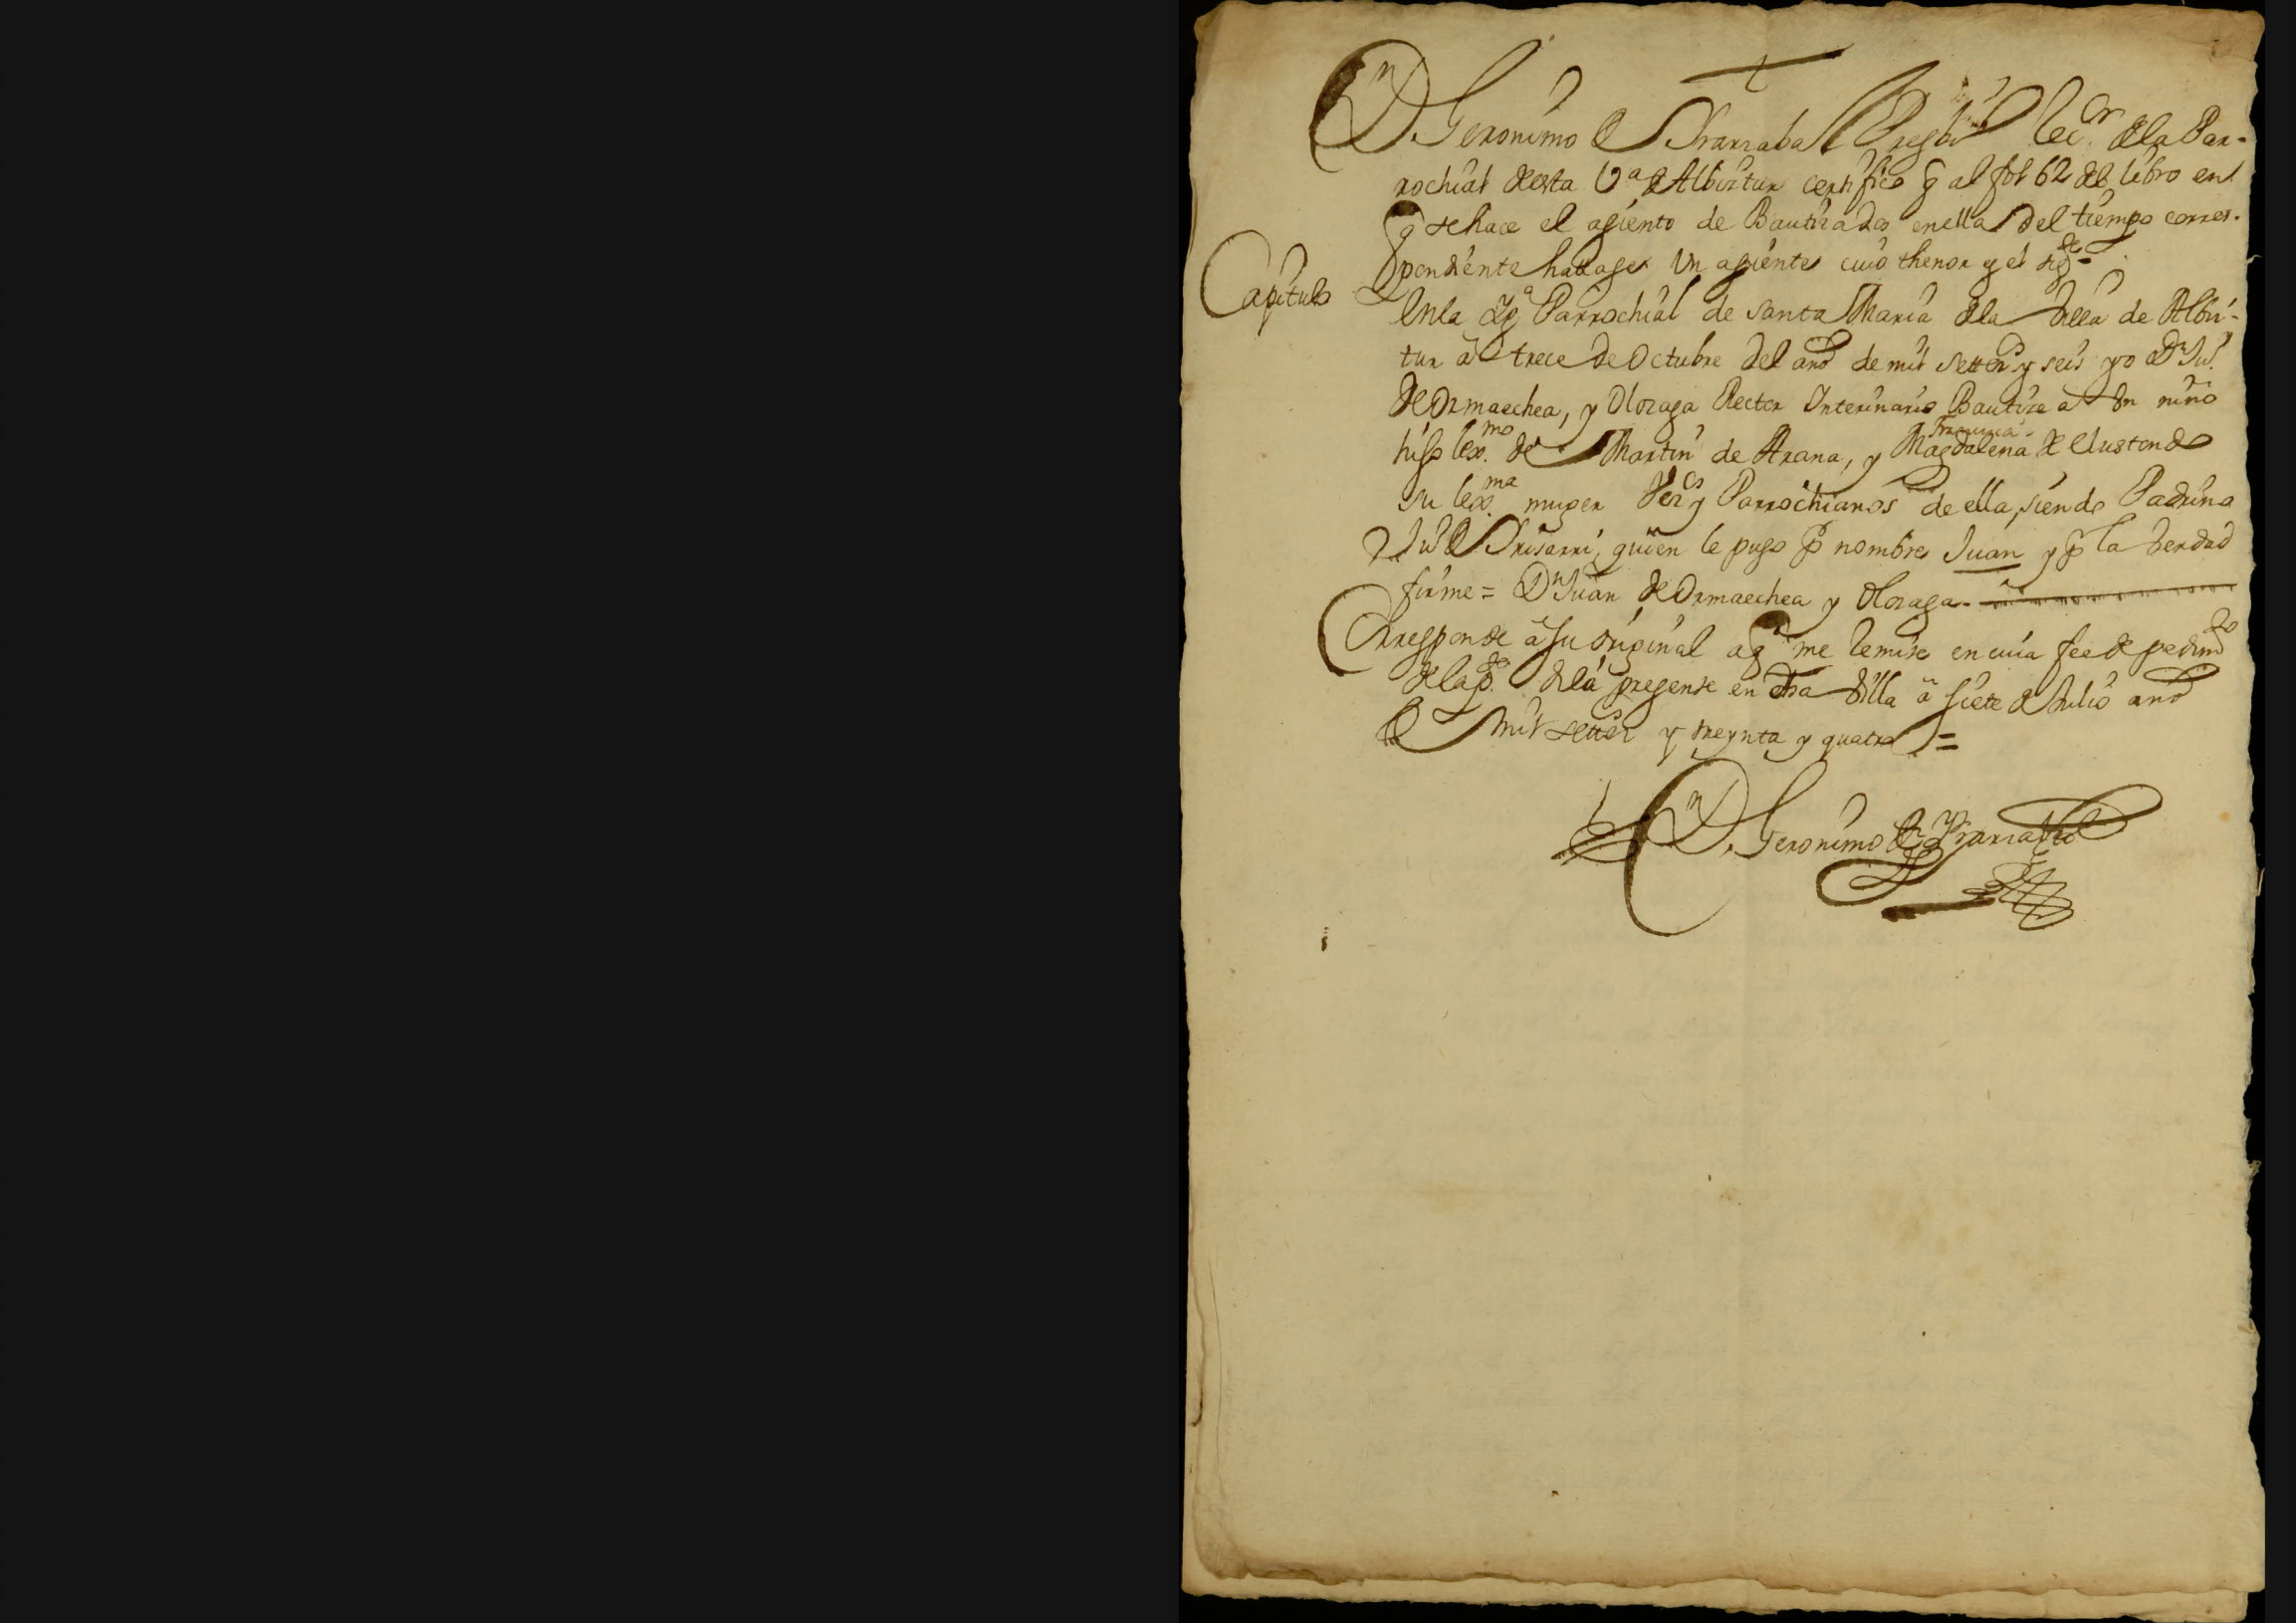 Dn. Geronimo de Yrarzabal Presbro Recr. de la Par-
rochial de esta Va. de Albiztur certifico q al fol 62 del libro en
q se hace el asiento de Bautizados en ella del tiempo corres-
pondiente hallase Un asiento cuio thenor es el sigte =
Capitulo
En la Yga. Parrochial de santa Maria de la Villa de Albiz-
tur â trece de Octubre del año de mil settez. y seis yo Dn Jun.
de Ormaechea, y Olozaga Rector Interinario Bautize a Un niño
hijo lexmo. de Martin de Arana, y Francisca Magdalena de Elustondo
su lexma. muger vezos y Parrochianos de ella, siendo Padrina
de Urisarri, quien le puso por nombre Juan y por la verdad
firme = Dn Juan de Ormaechea y Olozaga.
Corresponde â su original a q me remito en cuia fee de pedimto
de la pte. di la presente en dha Villa â siete de Julio año
de Mil settez. y treynta y quatro =
Dn. Geronimo de Yrarzabal